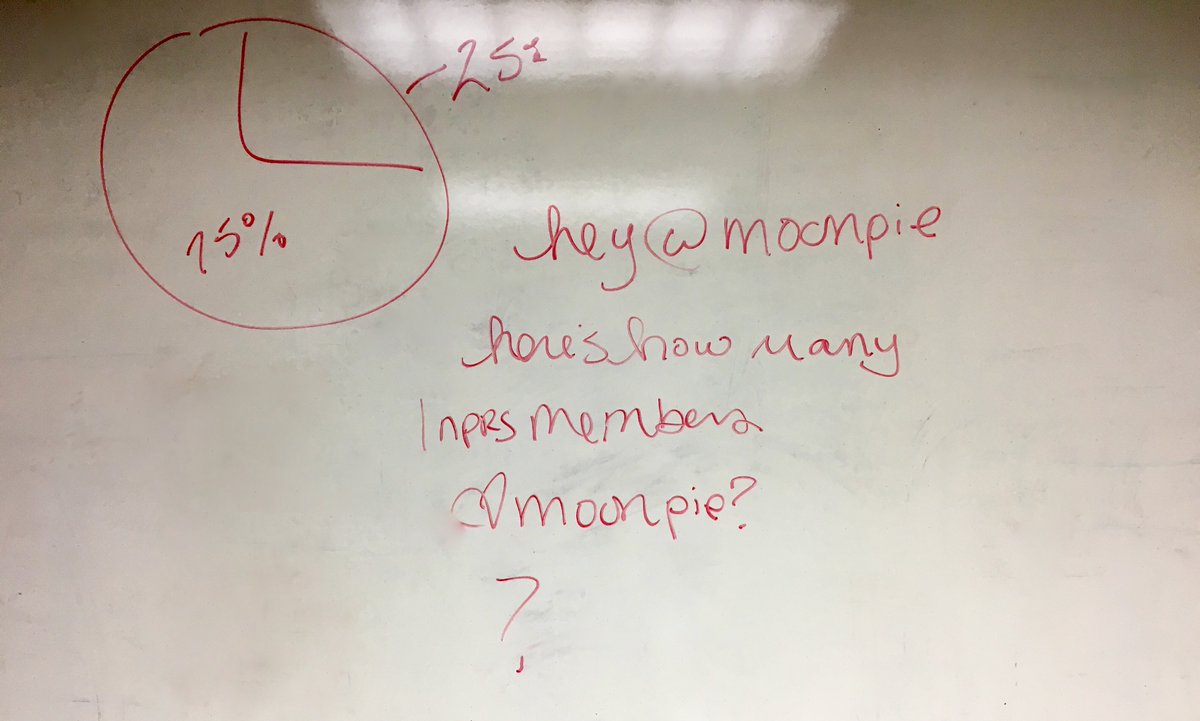 25%
75%
hey @moonpie
here's how many
INPRS members
♡ moonpie?
?